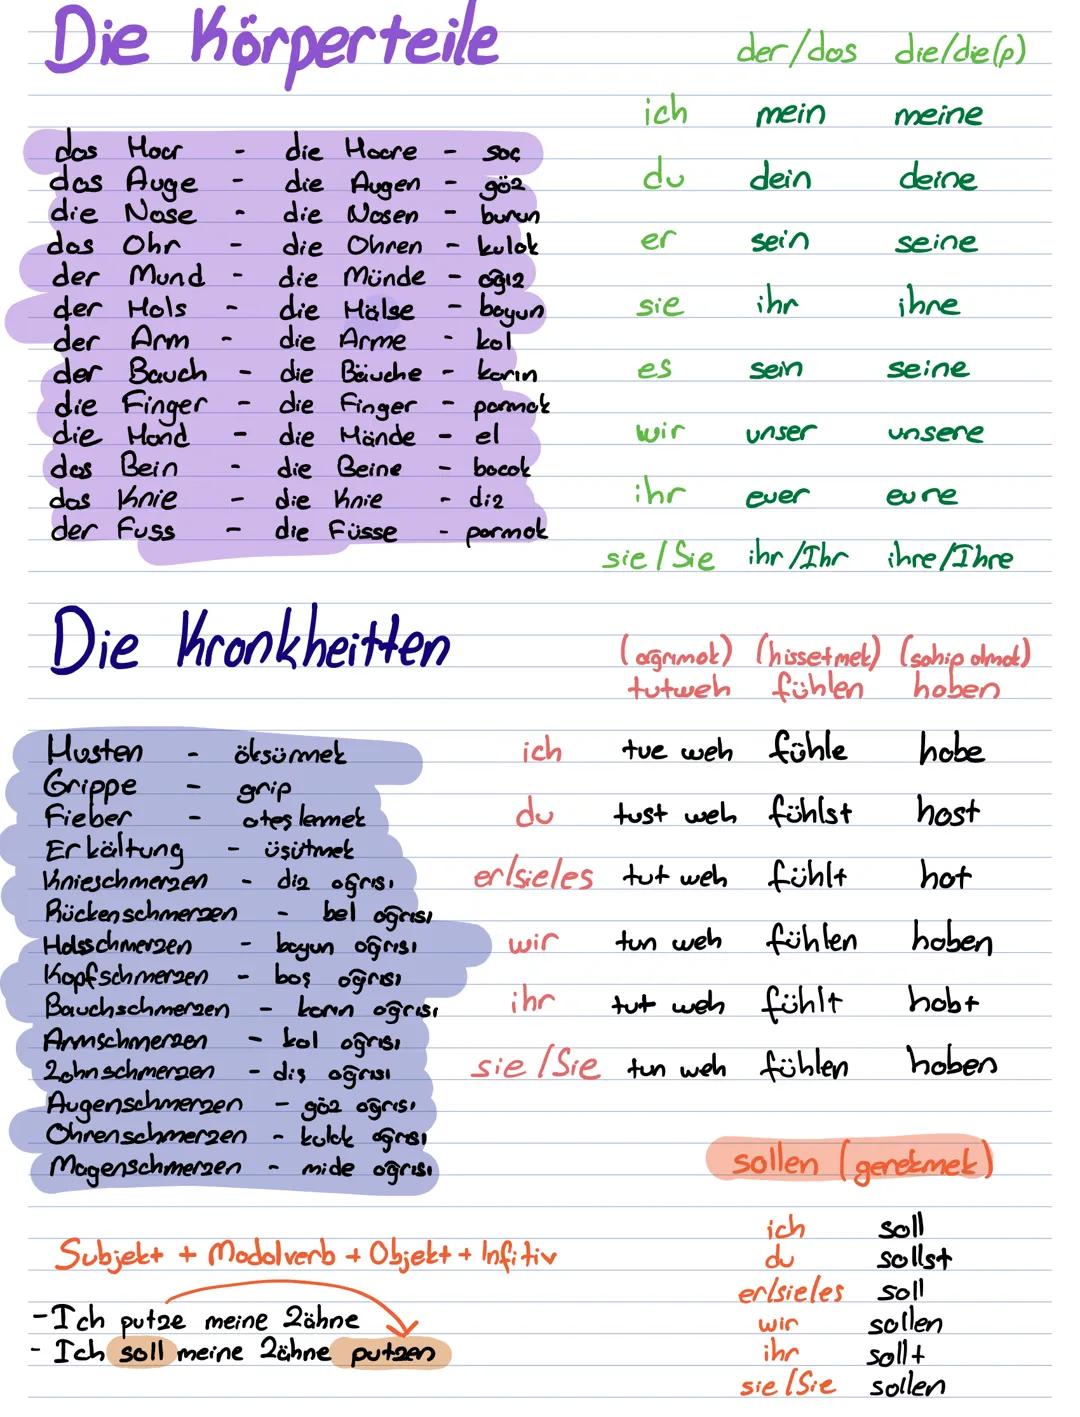 Die Körperteile
das Haar - die Haare - saç
das Auge - die Augen - göz
die Nase - die Nasen - burun
das Ohr - die Ohren - kulak
der Mund - die Münde - ağız
der Hals - die Hälse - boyun
der Arm - die Arme - kol
der Bauch - die Bäuche - karın
die Finger - die Finger - parmak
die Hand - die Hände - el
das Bein - die Beine - bacak
das Knie - die Knie - diz
der Fuss - die Füsse - parmak
der/das die/die(p)
ich mein meine
du dein deine
er sein seine
sie ihr ihne
es sein seine
wir unser unsere
ihr euer eure
sie/Sie ihr/Ihr ihre/Ihre
Die Krankheitten
Husten - öksürmek
Grippe - grip
Fieber - ateşlenmek
Erkältung - üşütmek
Knieschmerzen - diz ağrısı
Rückenschmerzen - bel ağrısı
Halsschmerzen - boyun ağrısı
Kopfschmerzen - baş ağrısı
Bauchschmerzen - karın ağrısı
Armschmerzen - kol ağrısı
Zahnschmerzen - diş ağrısı
Augenschmerzen - göz ağrısı
Ohrenschmerzen - kulak ağrısı
Magenschmerzen - mide ağrısı
(ağrımak) (hissetmek) (sahip olmak)
tutweh fühlen haben
ich tue weh fühle habe
du tust weh fühlst hast
er/sie/es tut weh fühlt hat
wir tun weh fühlen haben
ihr tut weh fühlt habt
sie/Sie tun weh fühlen haben
sollen (gerekmek)
ich soll
du sollst
er/sie/es soll
wir sollen
ihr sollt
sie/Sie sollen
Subjekt + Modalverb + Objekt + Infitiv
- Ich putze meine Zähne
- Ich soll meine Zähne putzen